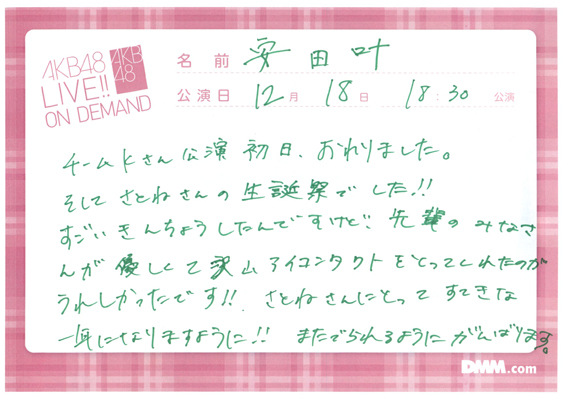 AKB48
LIVE!!
ON DEMAND
AKB
48
名前 安田叶
公演日 12月 18日 18:30 公演
チームKさん公演 初日、おわりました。
そして さとねさんの 生誕祭でした!!
すごい きんちょうしたんですけど、先輩の みなさ
んが 優しくて 沢山 アイコンタクトをとってくれたのが
うれしかったです!! さとねさんにとって すてきな
一年になりますように!! またでられるように がんばります。
DMM.com